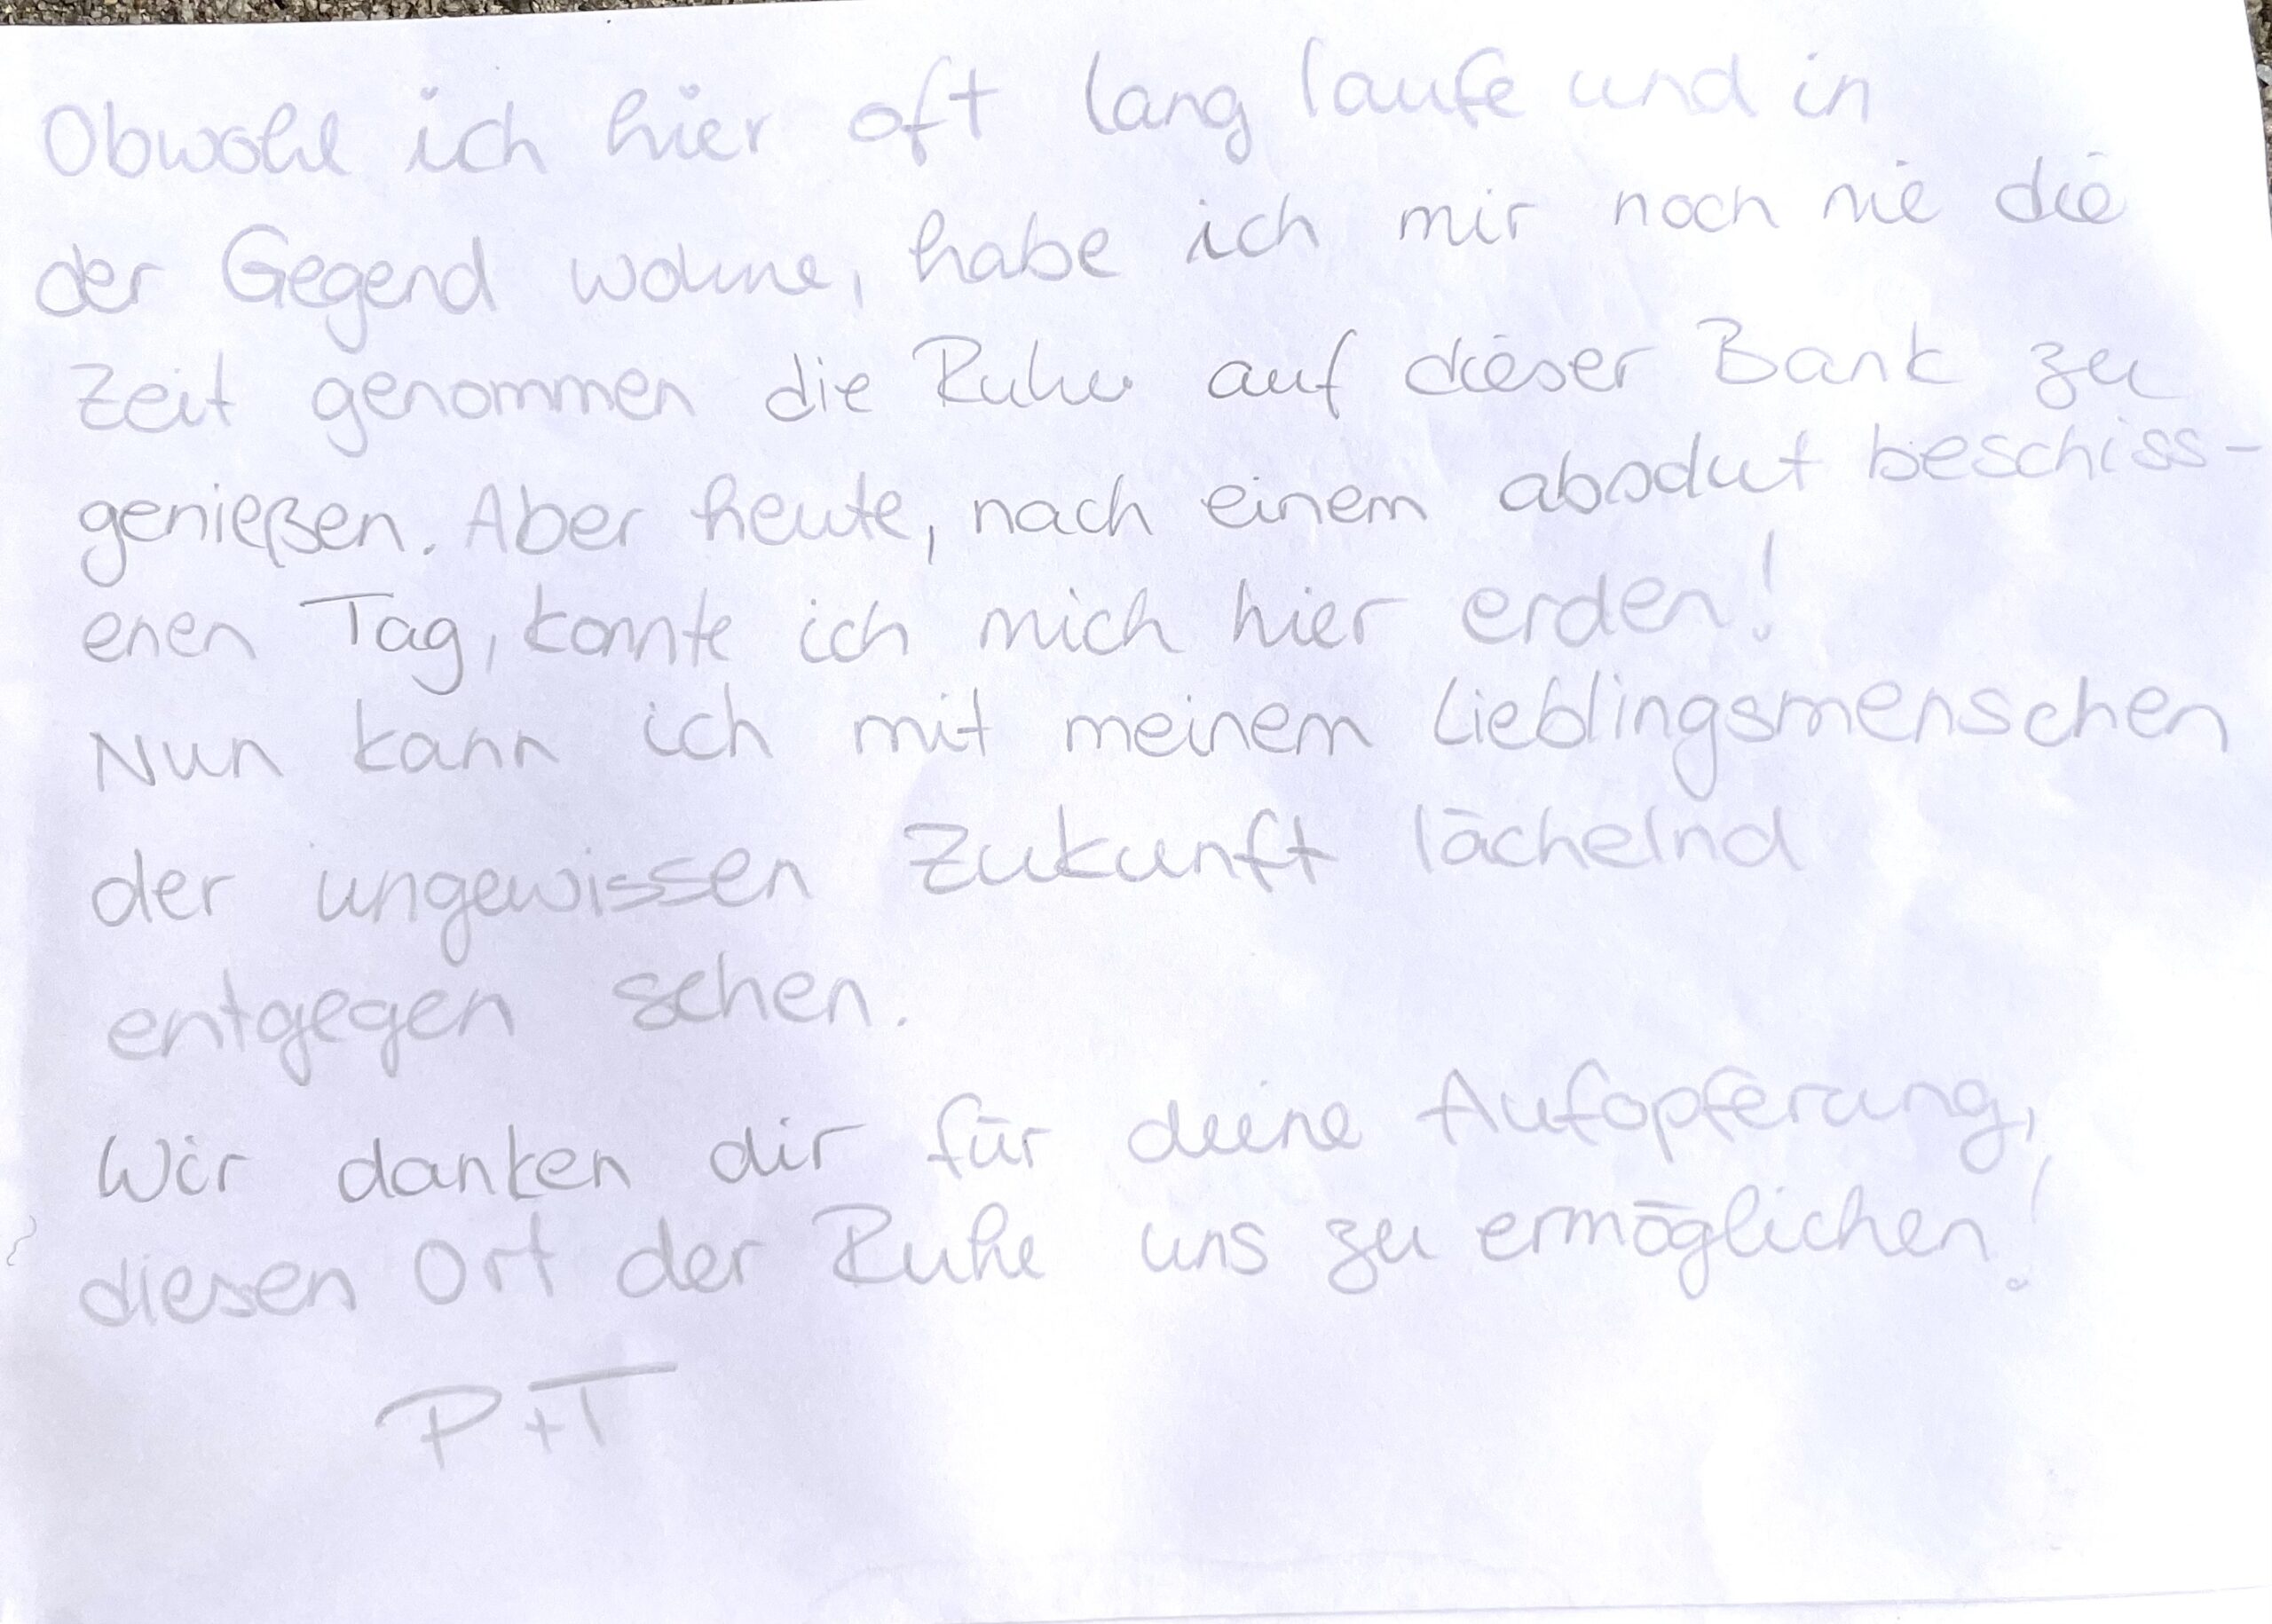 Obwohl ich hier oft lang laufe und in
der Gegend wohne, habe ich mir noch nie die
Zeit genommen die Ruhe auf dieser Bank zu
genießen. Aber heute, nach einem absolut beschiss-
enen Tag, konnte ich mich hier erden!
Nun kann ich mit meinem Lieblingsmenschen
der ungewissen Zukunft lächelnd
entgegen sehen.
Wir danken dir für deine Aufopferung,
diesen Ort der Ruhe uns zu ermöglichen!
P+T